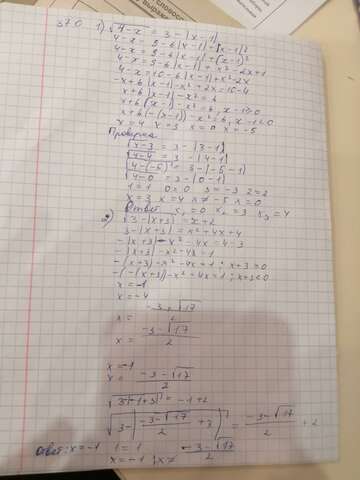 370 1) √4-x = 3-|x-1|
4-x = 9-6|x-1|+(x-1)²
4-x = 9-6|x-1|+(x-1)²
4-x = 9-6|x-1|+x²-2x+1
4-x = 10-6|x-1|+x²-2x
-x+6|x-1|-x²+2x=10-4
x+6|x-1|-x²=6
x+6(x-1)-x²=6, x-1≥0
x+6(-(x-1))-x²=6, x-1<0
x=4 x=3 x=0 x=-5
Проверка
√4-4 = 3-|4-1|
√4-(-5) = 3-|-5-1|
√4-0 = 3-|0-1|
1=1 0=0 3=-3 2=2
x=3 x=4 x≠-5 x=0
Ответ x₁=0 x₂=3 x₃=4
2) √3-|x+3| = x+2
3-|x+3| = x²+4x+4
-|x+3|-x²-4x=4-3
-|x+3|-x²-4x=1
-(x+3)-x²-4x=1; x+3≥0
-(-(x+3))-x²-4x=1; x+3<0
x=-1
x=-4
x= -3-√17
x= -3-√17
2
x=-1
x= -3-√17
2
√3-|-1+3| = -1+2
√3-|-3-√17/2+3| = -3-√17/2+2
Ответ: x=-1 1=1
x=-1, x≠ -3-√17/2